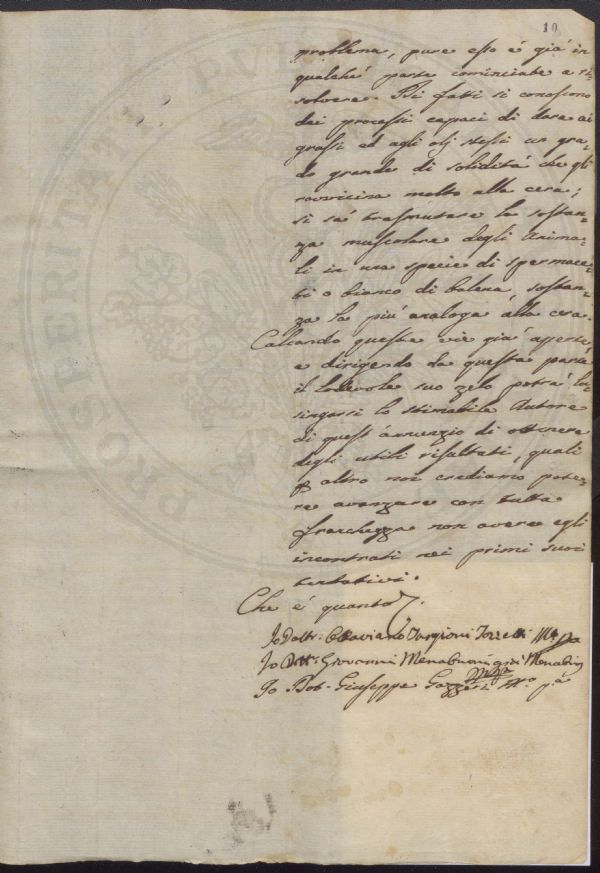 10
problema, pure esso é giá in
qualche parte cominciato a ri-
solvere. Di fatti si conoscono
dei processi capaci di dare ai
grassi ed agli olj stessi un gra-
do grande di solidità che gli
ravvicina molto alla cera;
si sá trasmutare la sostan-
za muscolare degli Anima-
li in una specie di spermace-
ti o bianco di balena, sostan-
za la piú analoga alla cera.
Calcando queste vie giá aperte,
e dirigendo da questa parte
il Lodevole suo zelo potrá lu-
singarsi lo stimabile Autore
di quest'annunzio di ottenere
degli utili risultati, quali
altro noi crediamo pote-
re avanzare con tutta
franchezza non avere egli
incontrati nei primi suoi
tentativi.
Che é quanto
Io Dott. Ottaviano Targioni Tozzetti
Io Dott. Giovanni Menabuoni
Io Dott. Giuseppe Gazzeri
PROSPERITATI PUB